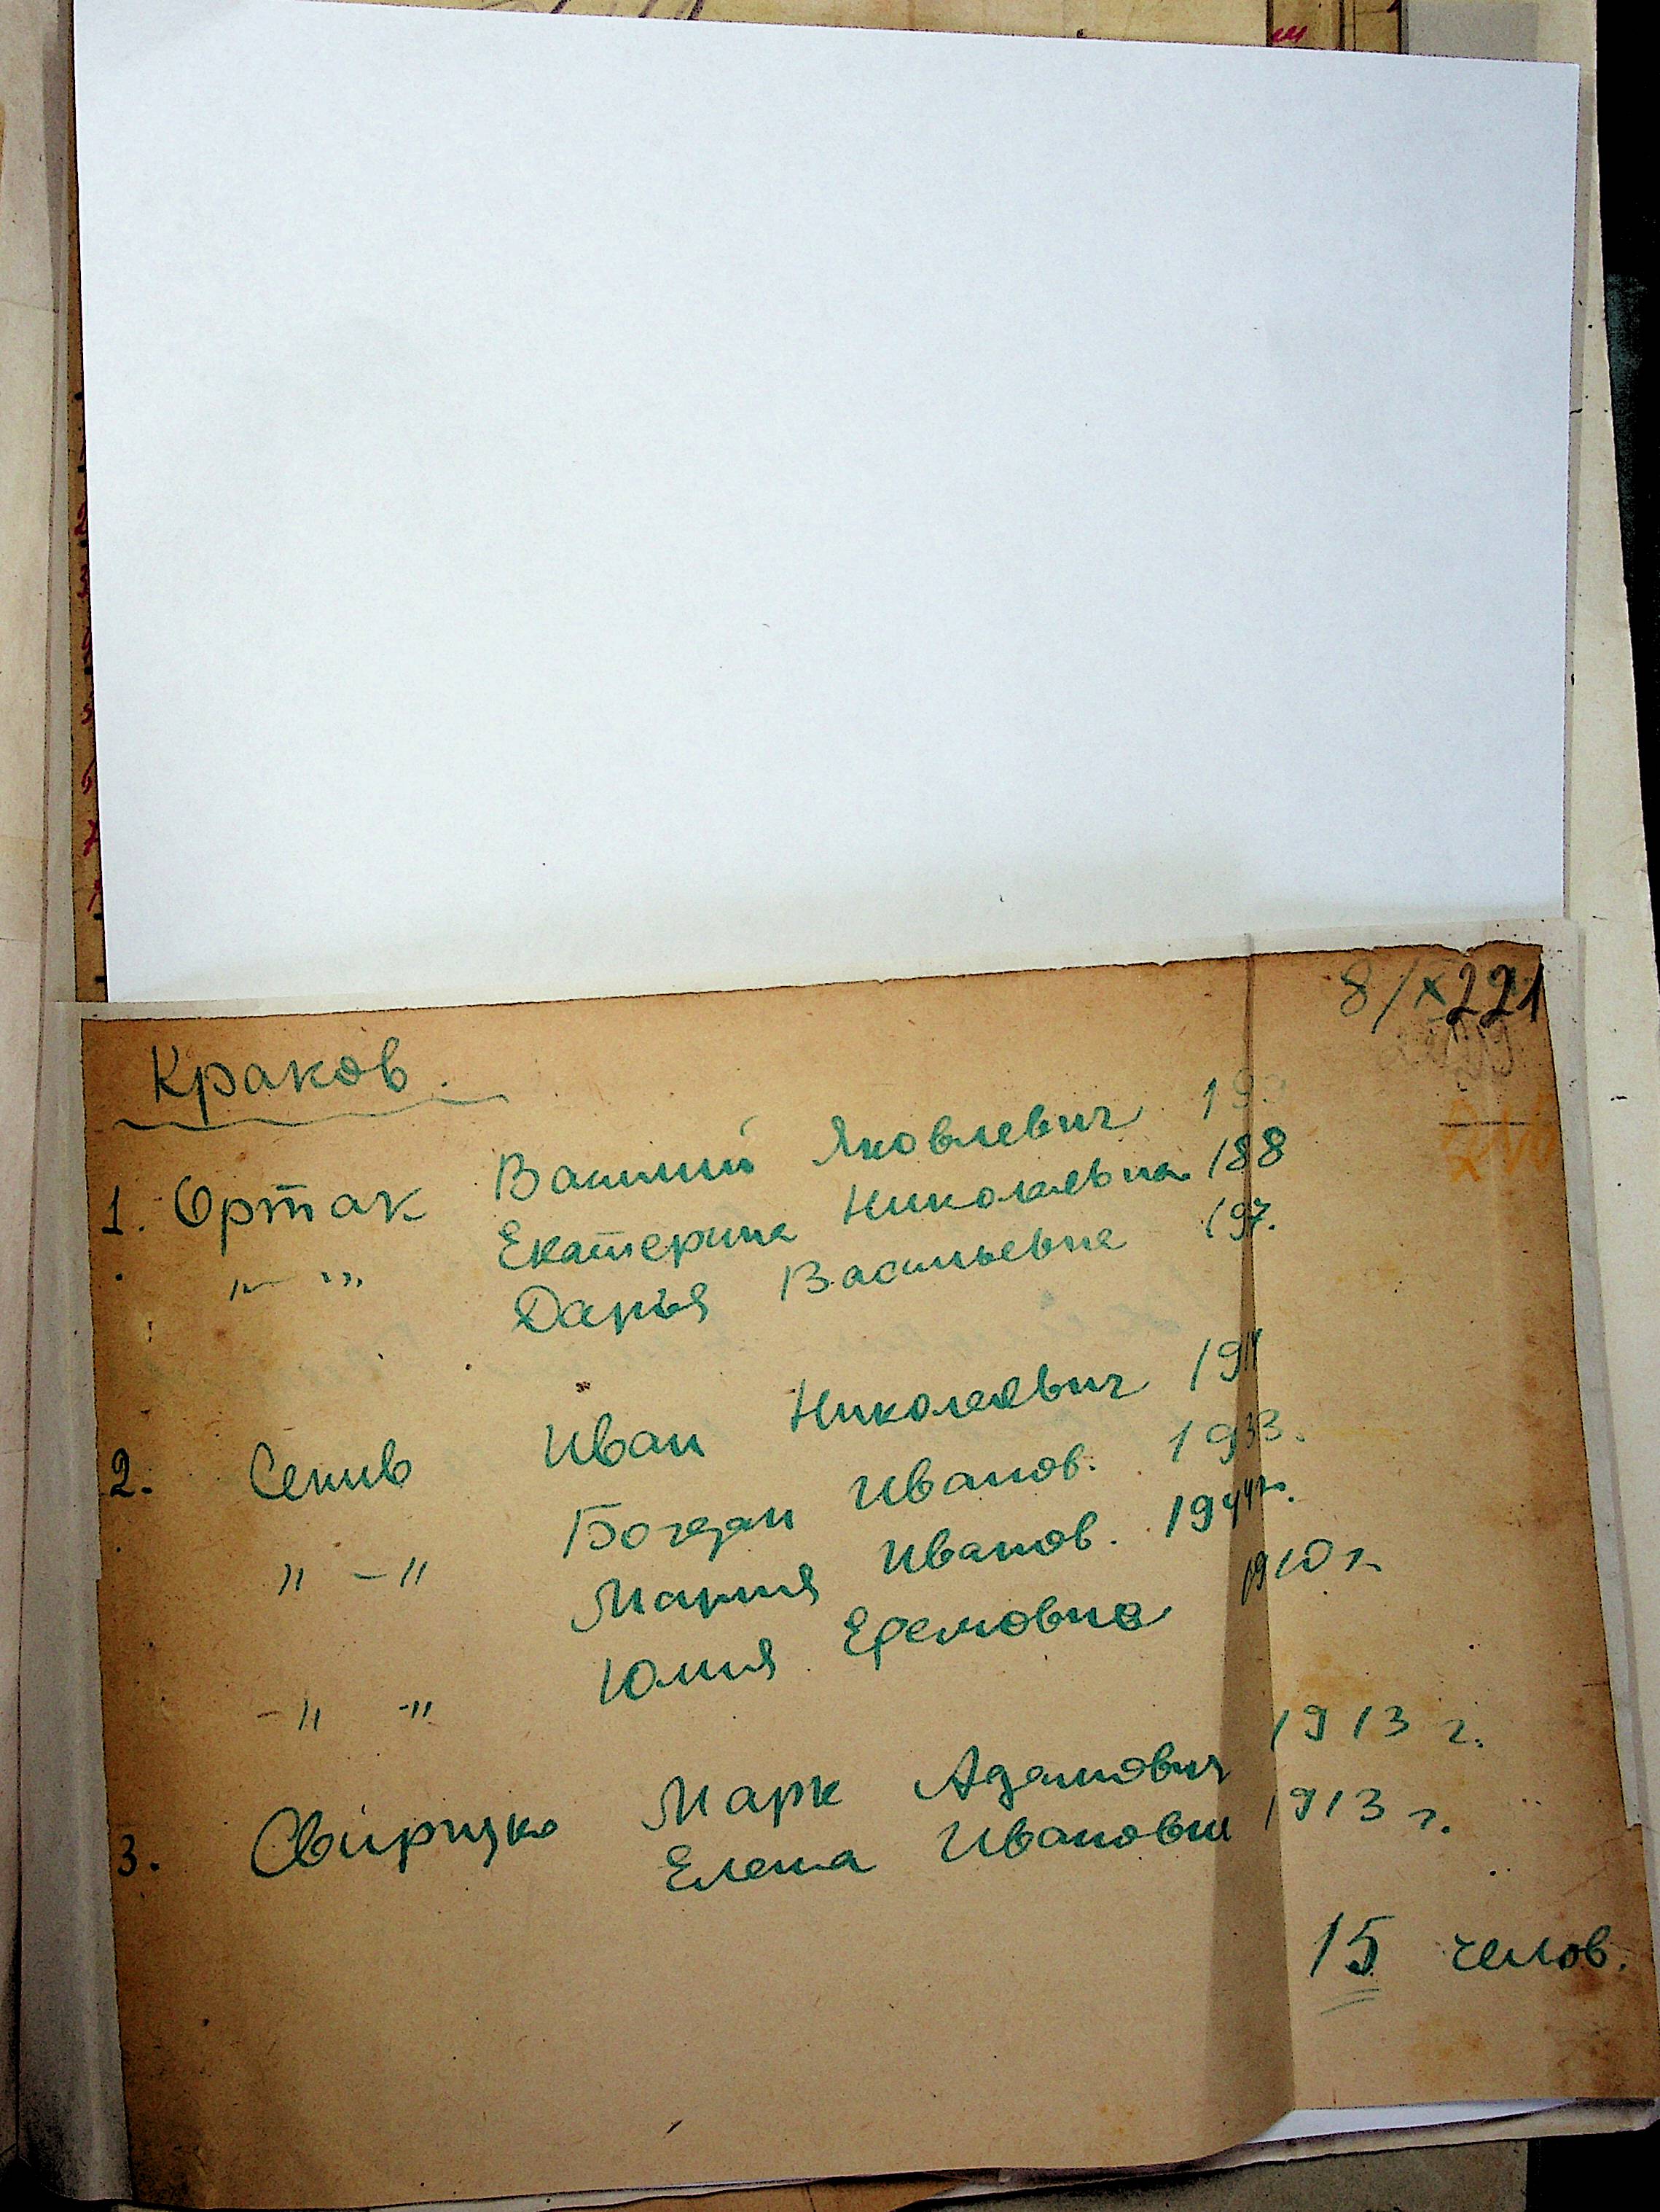 8/X 221
Краков.
1. Ортак Василий Яковлевич
" — " Екатерина Николаевна 188
Дарья Васильевна
2. Сенив Иван Николаевич 1911
" — " Богдан Иванов. 1933.
Мария Иванов. 1944 г.
— " — " Юлия Ефемовна 1910 г.
3. Свирицко Марк Адамович 1913 г.
Елена Ивановн 1913 г.
15 челов.